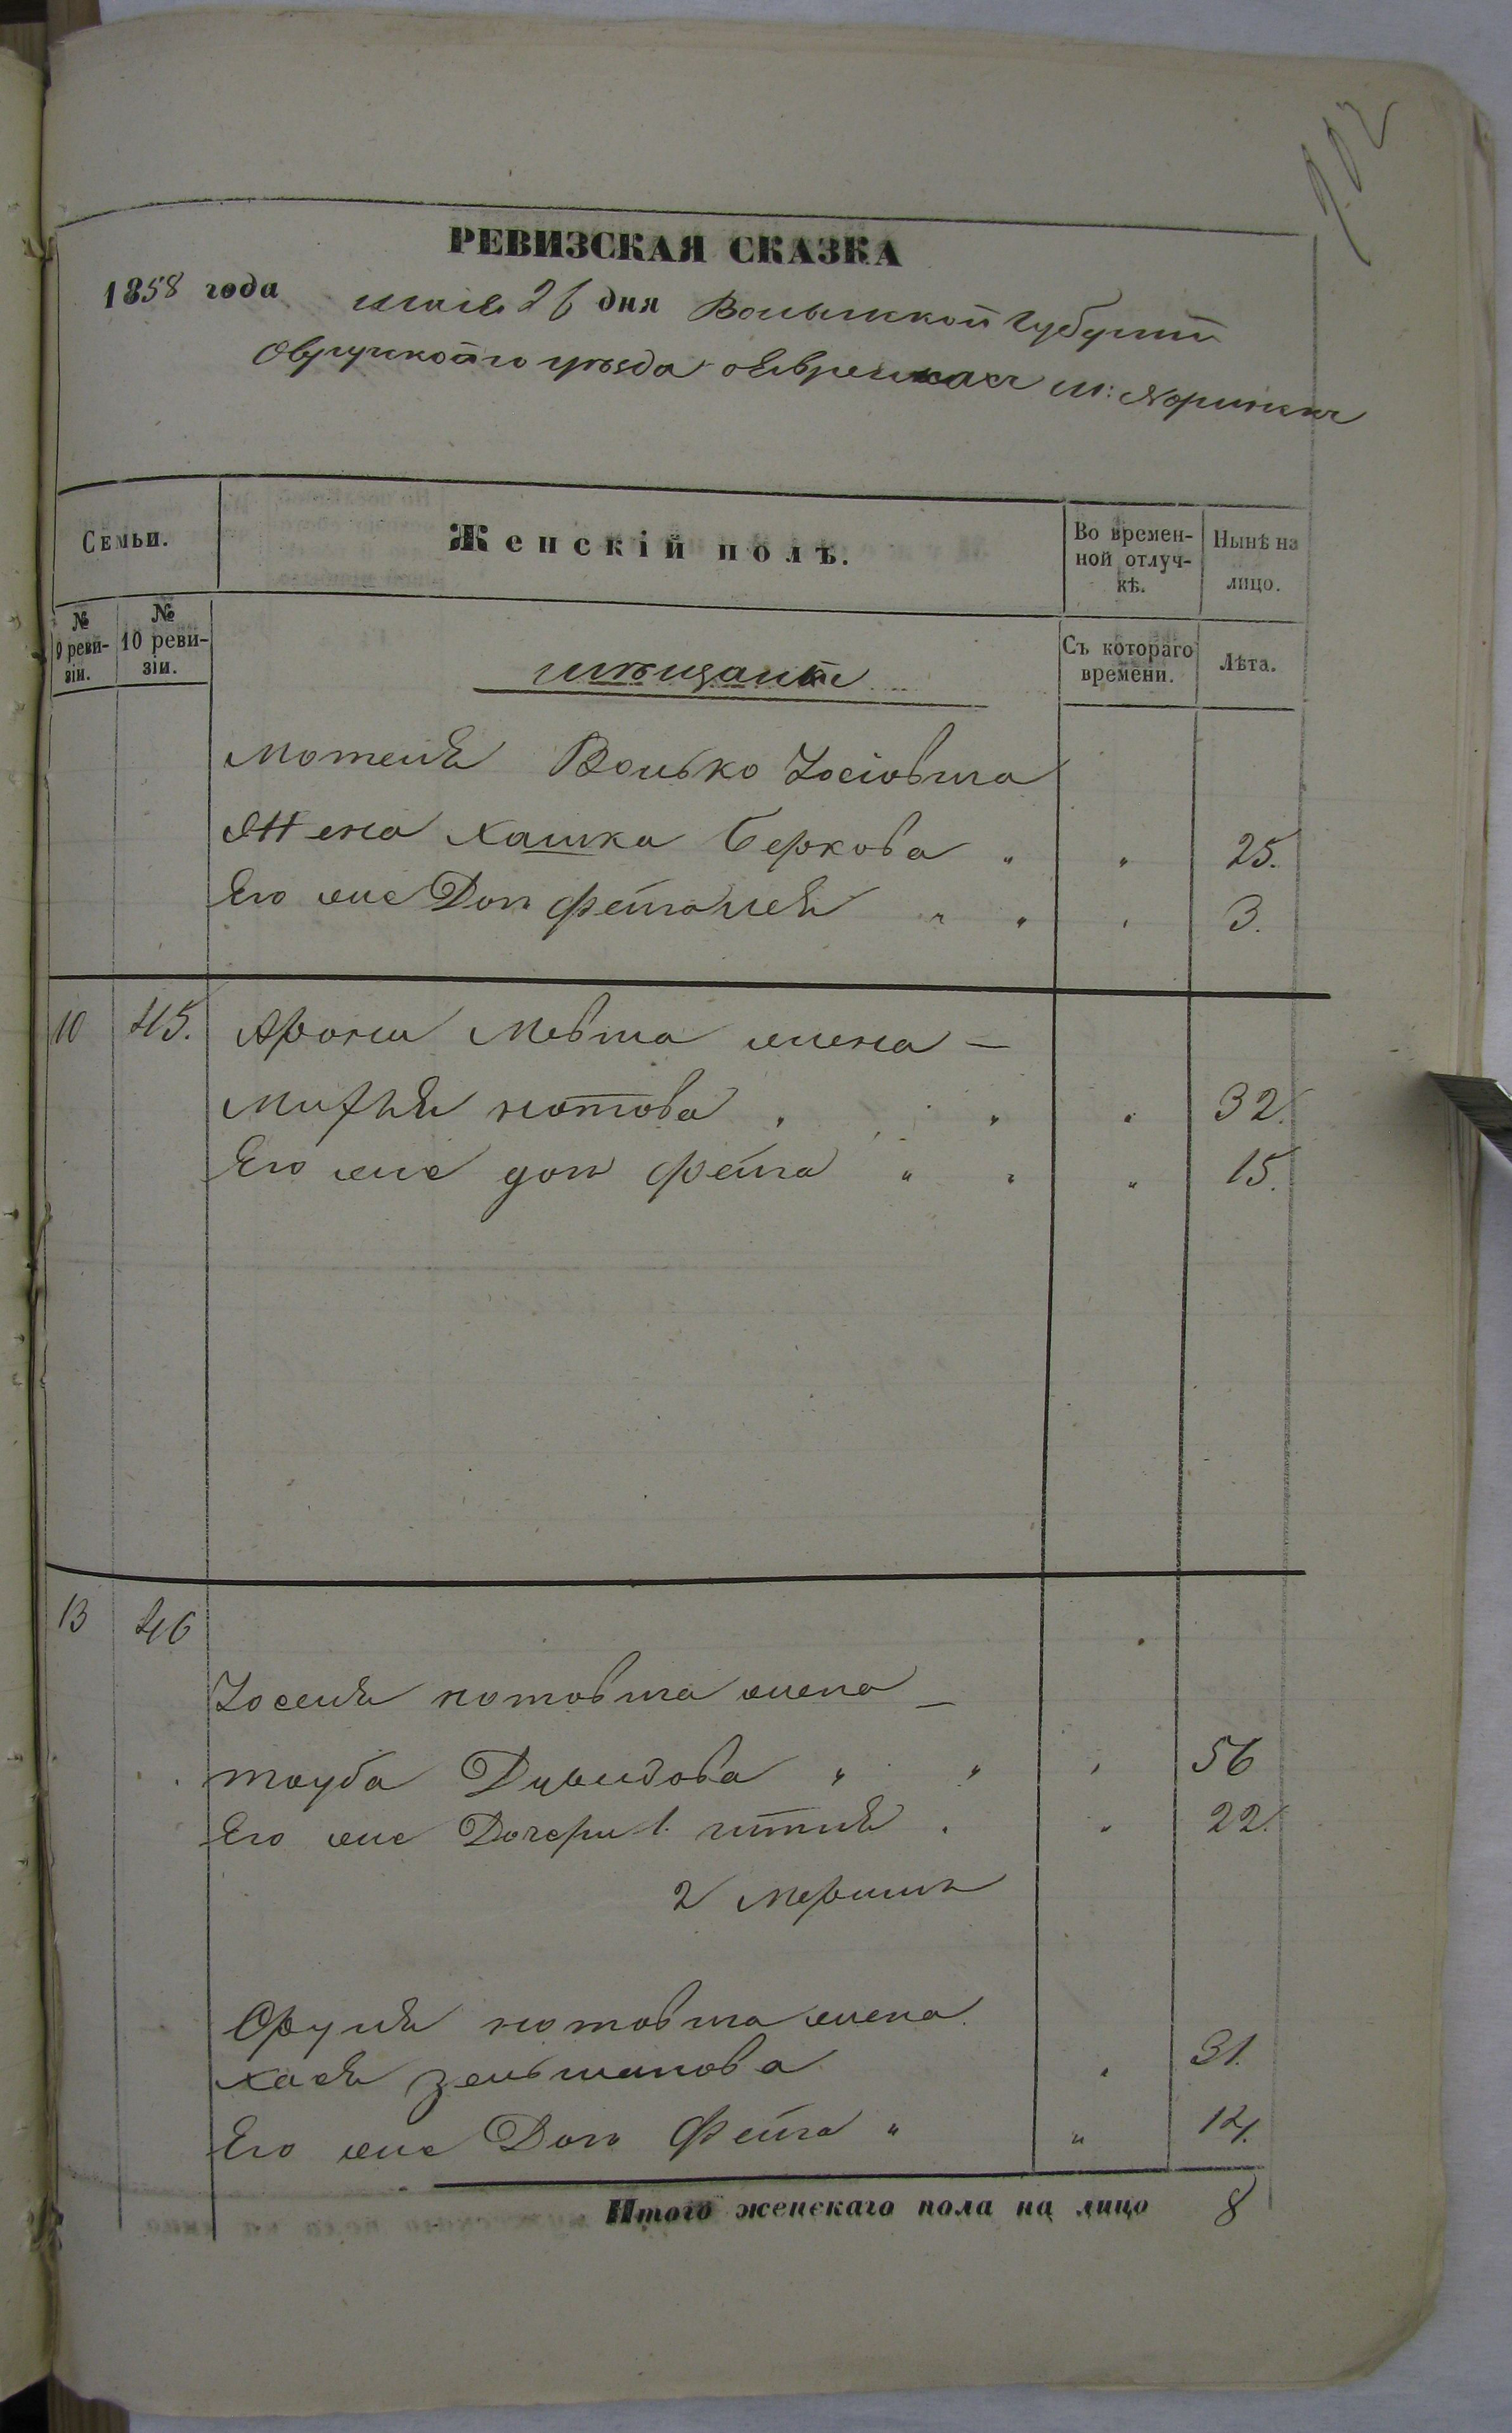 702
РЕВИЗСКАЯ СКАЗКА
1858 года мая 26 дня Волынской Губернии
Овручского уѣзда о Евреяхъ м: Норинскъ
Семьи.
Женскій полъ.
Во времен-
ной отлуч-
кѣ.
Нынѣ на
лицо.
№
9 реви-
зіи.
№
10 реви-
зіи.
мѣщане
Съ котораго
времени.
Лѣта.
Мотеля Волько Іосіовича
Жена Хашка Беркова " " 25.
Его же Доч Фейгалея " " " 3.
10 45. Арона Мовша жена —
Нотова " " " 32.
Его же доч Фейга " " " 15.
13 46
Іоселя Нотовича жена —
Тауба Давидова " " " 56
Его же Дочери 1. Гитля " " 22.
2
Сруля Нотовича жена
Хася Зельманова " 31.
Его же Доч Фейга " " 14.
Итого женскаго пола на лицо 8